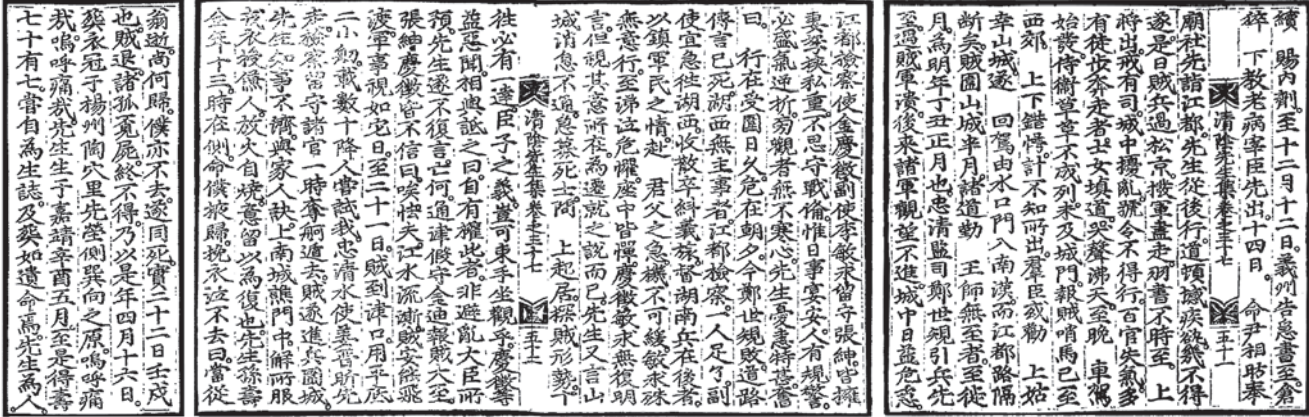 續 賜內劑至十二月十二日義州告急書至倉
猝 下教老病宰臣先出十四日 命尹相昉奉
廟社先詣江都先生從後行道頓撼疾欲幾不得
遂是日賊兵過松京撥軍盡走羽書不時至 上
清陰先生集卷之三十七 五十一
將出戒有司城中擾亂號令不得行百官失兼多
有徒步奔走者士女塡道哭聲沸天至晚 車駕
始發侍衛草草不成列未及城門報賊哨馬已至
西郊 上下錯愕計不知所出羣臣或勸 上姑
幸山城遂 回駕由水口門入南漢而江都路隔
斷矣賊圍山城半月諸道勤 王師無至者至從
月爲明年丁丑正月也忠淸監司鄭世規引兵先
至遇賊軍潰後來諸軍觀望不進城中日益危急
江都檢察使金慶徵副使李敏求留守張紳皆擁
妻孥挾私重不思守戰備惟日事宴安人有規警
必盛氣逆折旁觀者無不寒心先生憂憲特甚嘗
曰 行在受圍日久危在朝夕今鄭世規敗道路
傳言已死湖西無主事者江都檢察一人足了副
使宜急往湖西收散卒糾義旅督湖南兵在後者
以鎭軍民之情赴 君父之急機不可緩敏求殊
無意行至涕泣危懼座中皆憚慶徵敏求無復明
言但視其意所在爲遷就之說而已先生又言山
城消息不通急募死士問 上起居探賊形勢十
清陰先生集卷之三十七 五十二
往必有一達臣子之義豈可束手坐觀乎慶徵等
益惡聞相與詆之曰自有權此者非避亂大臣所
預先生遂不復言亡何通津假守金迪報賊大至
張紳慶徵皆不信曰唉怯夫江水流澌賊安能飛
渡軍事視如它日至二十一日賊到津口用平底
二小舠載數十降人嘗試我忠淸水使姜晉昕先
走檢察留守諸官一時奪舸遁去賊遂進兵圍城
先生知事不濟與家人訣上南城譙門弔解所服
戎衣授傔人放火自燒意留以爲復也先生孫壽
全年十三時在側命傔掖歸挽衣泣不去曰當從
翁逝尙何歸僕亦不去遂同死實二十二日壬戌
也賊退諸孤覓屍終不得乃以是年四月十六日
葬衣冠于楊州陶穴里先塋側巽向之原嗚呼痛
哉嗚呼痛哉先生生于嘉靖辛酉五月至是得壽
七十有七嘗自爲生誌及葬如遺命焉先生爲人